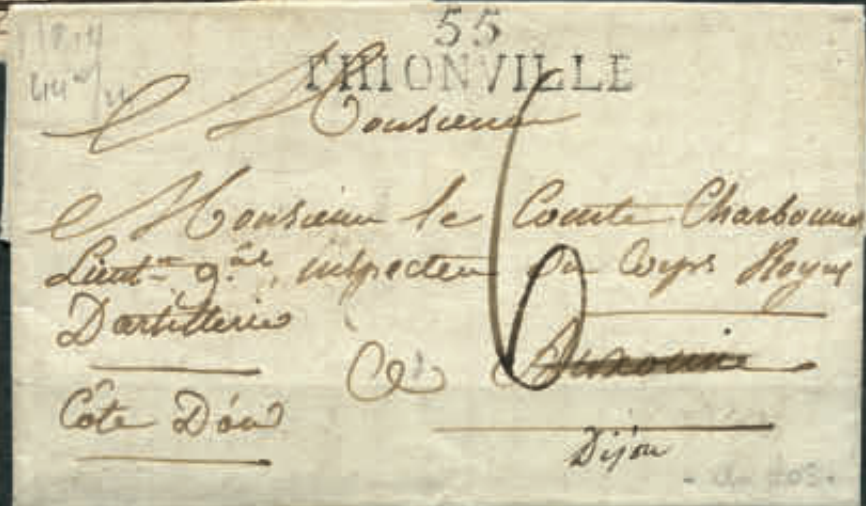 55
THIONVILLE
Monsieur
Monsieur le Comte Charbonnel
Lieut.n g.ral, inspecteur du Corps Royal
D'artillerie
6
A Auxonne
Côte D'or
Dijon